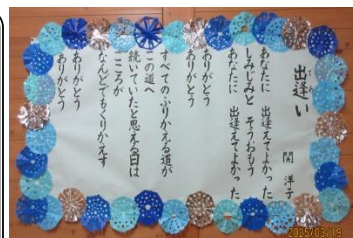 出逢い
であ
関　洋子
あなたに　出逢えてよかった
しみじみと　そうおもう
あなたに　出逢えてよかった
ありがとう
ありがとう
すべてのふりかえる道が
この道へ
続いていたと思える日は
こころが
なんどでもくりかえす
ありがとう
ありがとう
2025/03/19